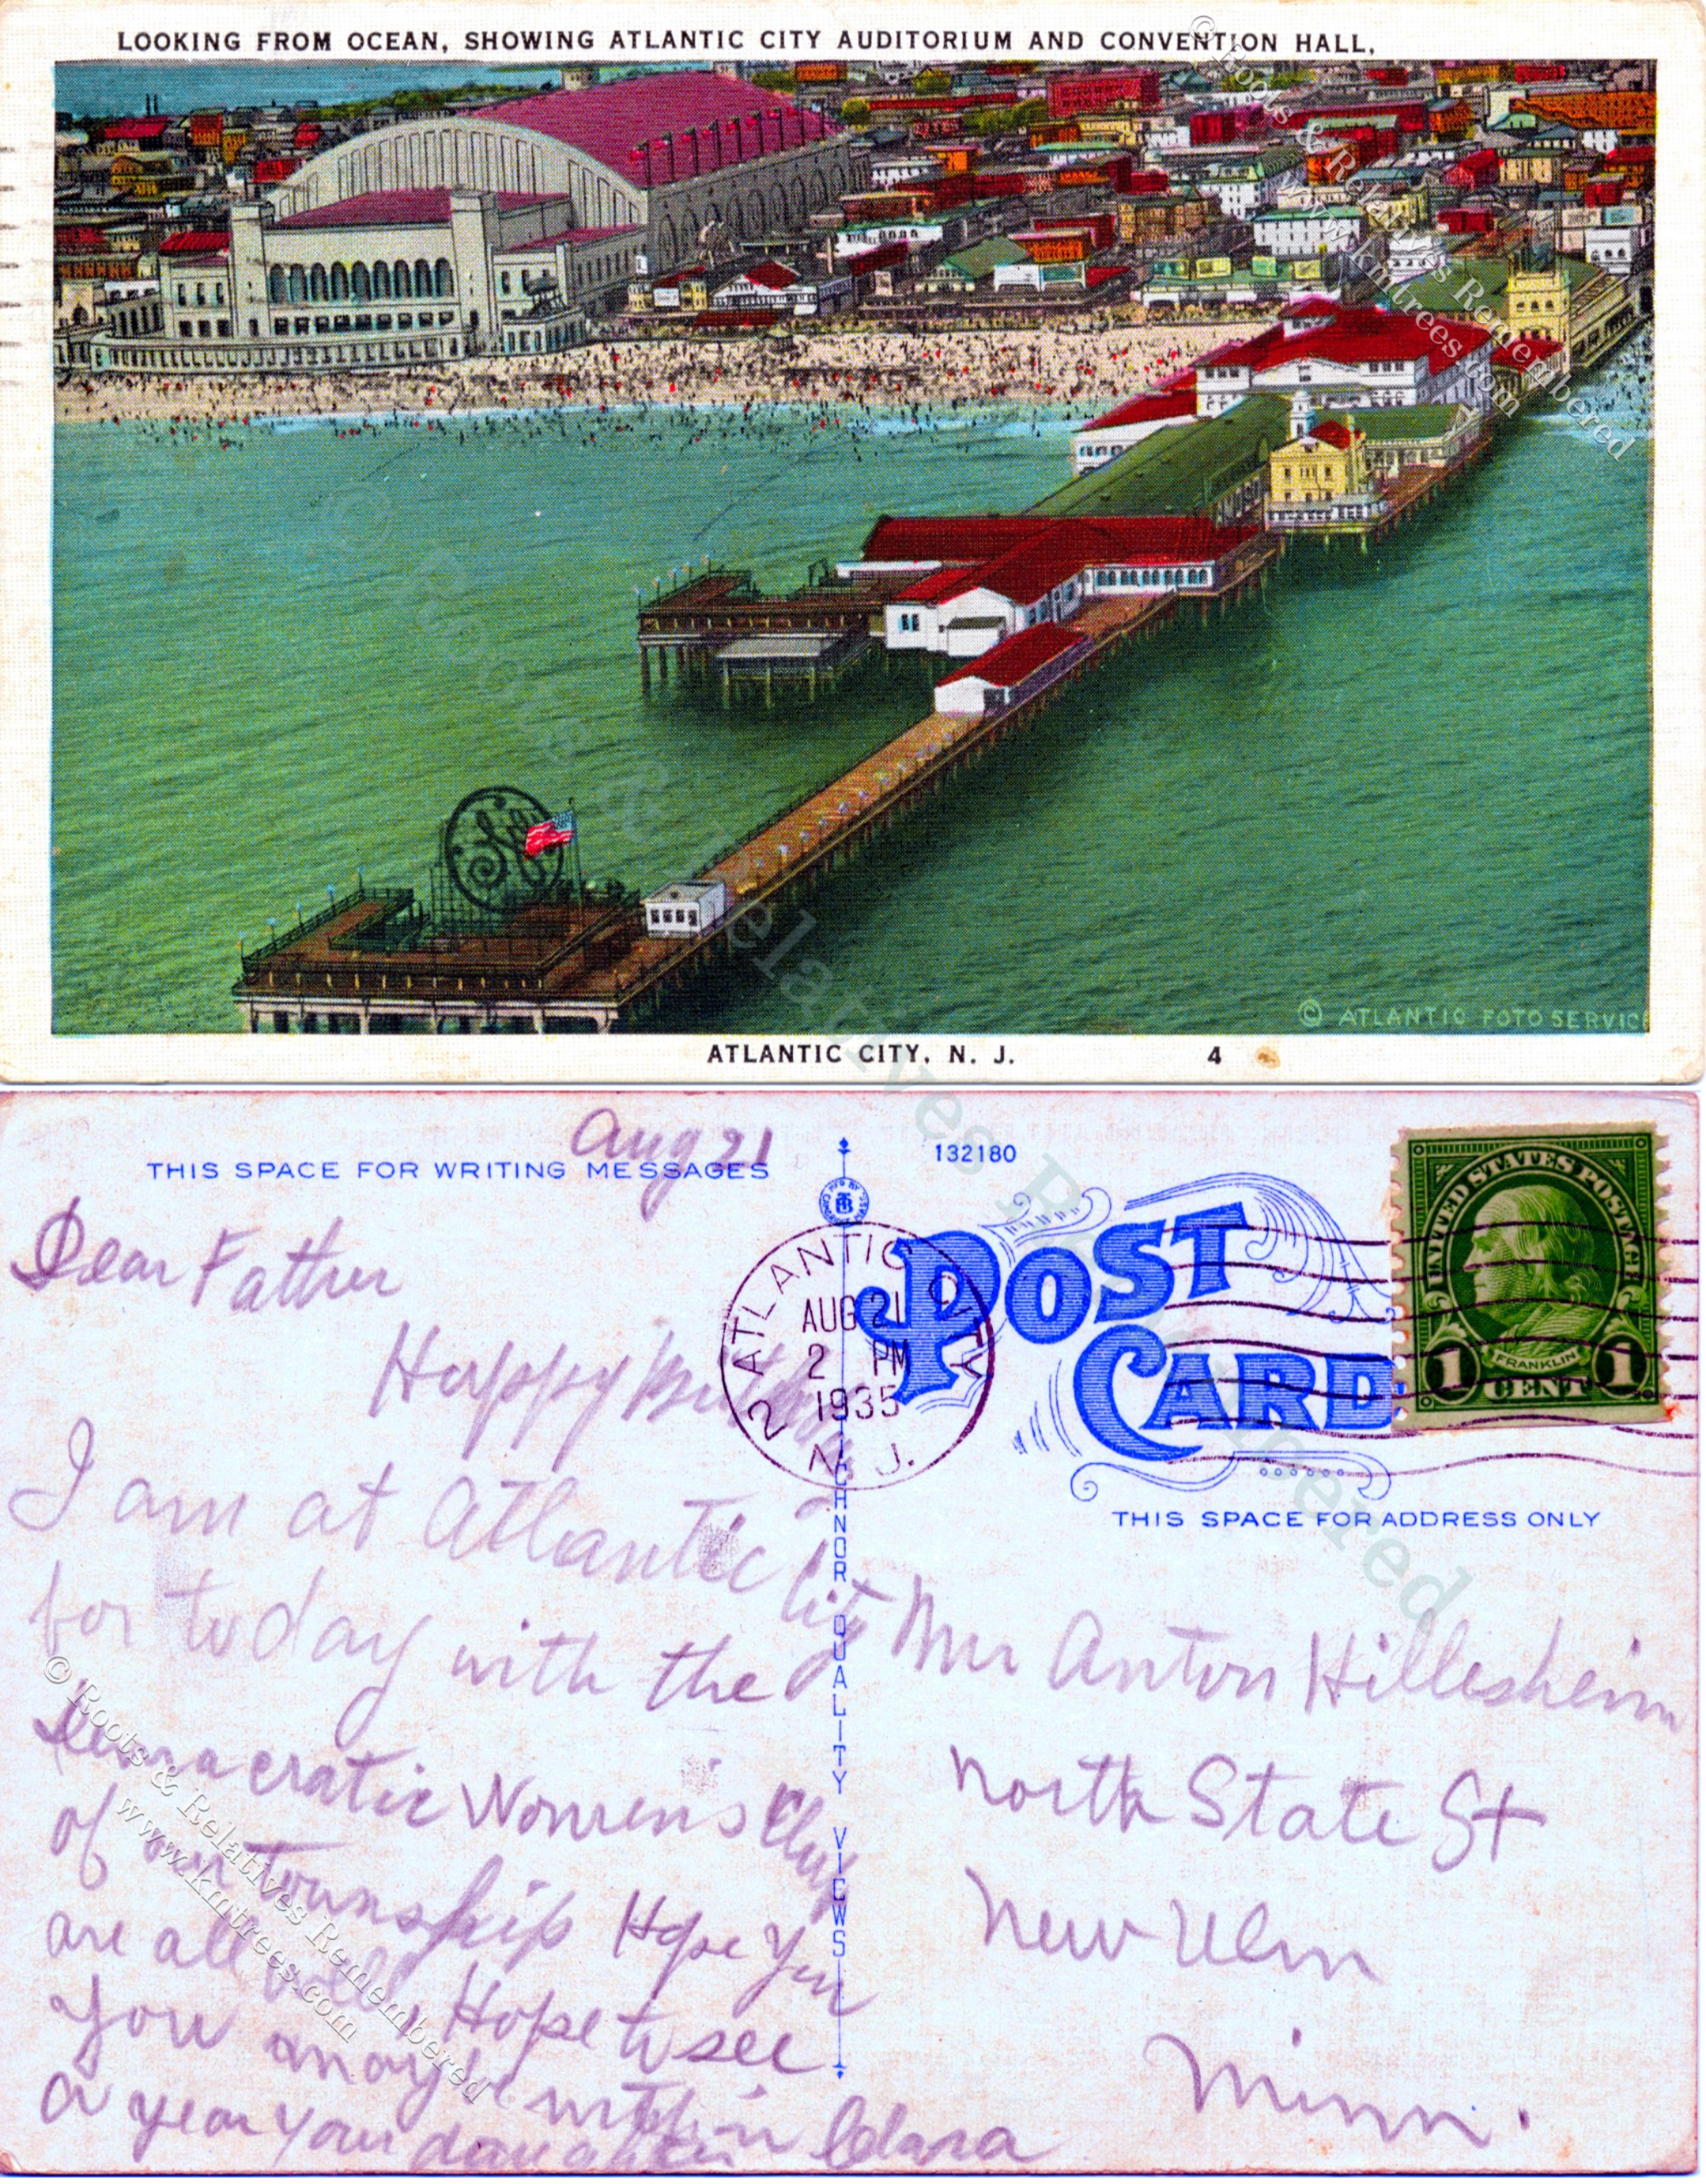 LOOKING FROM OCEAN, SHOWING ATLANTIC CITY AUDITORIUM AND CONVENTION HALL,
© ATLANTIC FOTO SERVICE
ATLANTIC CITY, N. J. 4
© Roots & Relatives Remembered
www.kmtrees.com
© Roots & Relatives Remembered
THIS SPACE FOR WRITING MESSAGES
Aug 21
Dear Father
Happy Birthday
I am at Atlantic City
for today with the
Democratic Women's Club
of our Township Hope you
are all well, Hope to see
you maybe within
a year your daughter Clara
© Roots & Relatives Remembered
www.kmtrees.com
C.T. ART
TICHNOR QUALITY VIEWS
132180
POST
CARD
ATLANTIC CITY
AUG 21
2 PM
1935
2 N. J.
UNITED STATES POSTAGE
FRANKLIN
1 CENT 1
THIS SPACE FOR ADDRESS ONLY
Mr Anton Hillesheim
North State St
New Ulm
Minn.